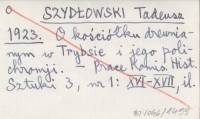 SZYDŁOWSKI Tadeusz
1923. O kościółku drewnia-
nym w Trybsie i jego poli-
chromji. – Prace Komis. Hist.
Sztuki 3, nr 1: XVI-XVII, il.